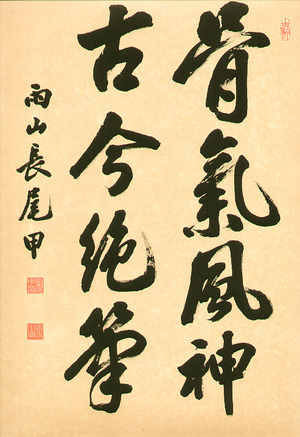 骨氣風神
古今絶筆
雨山長尾甲